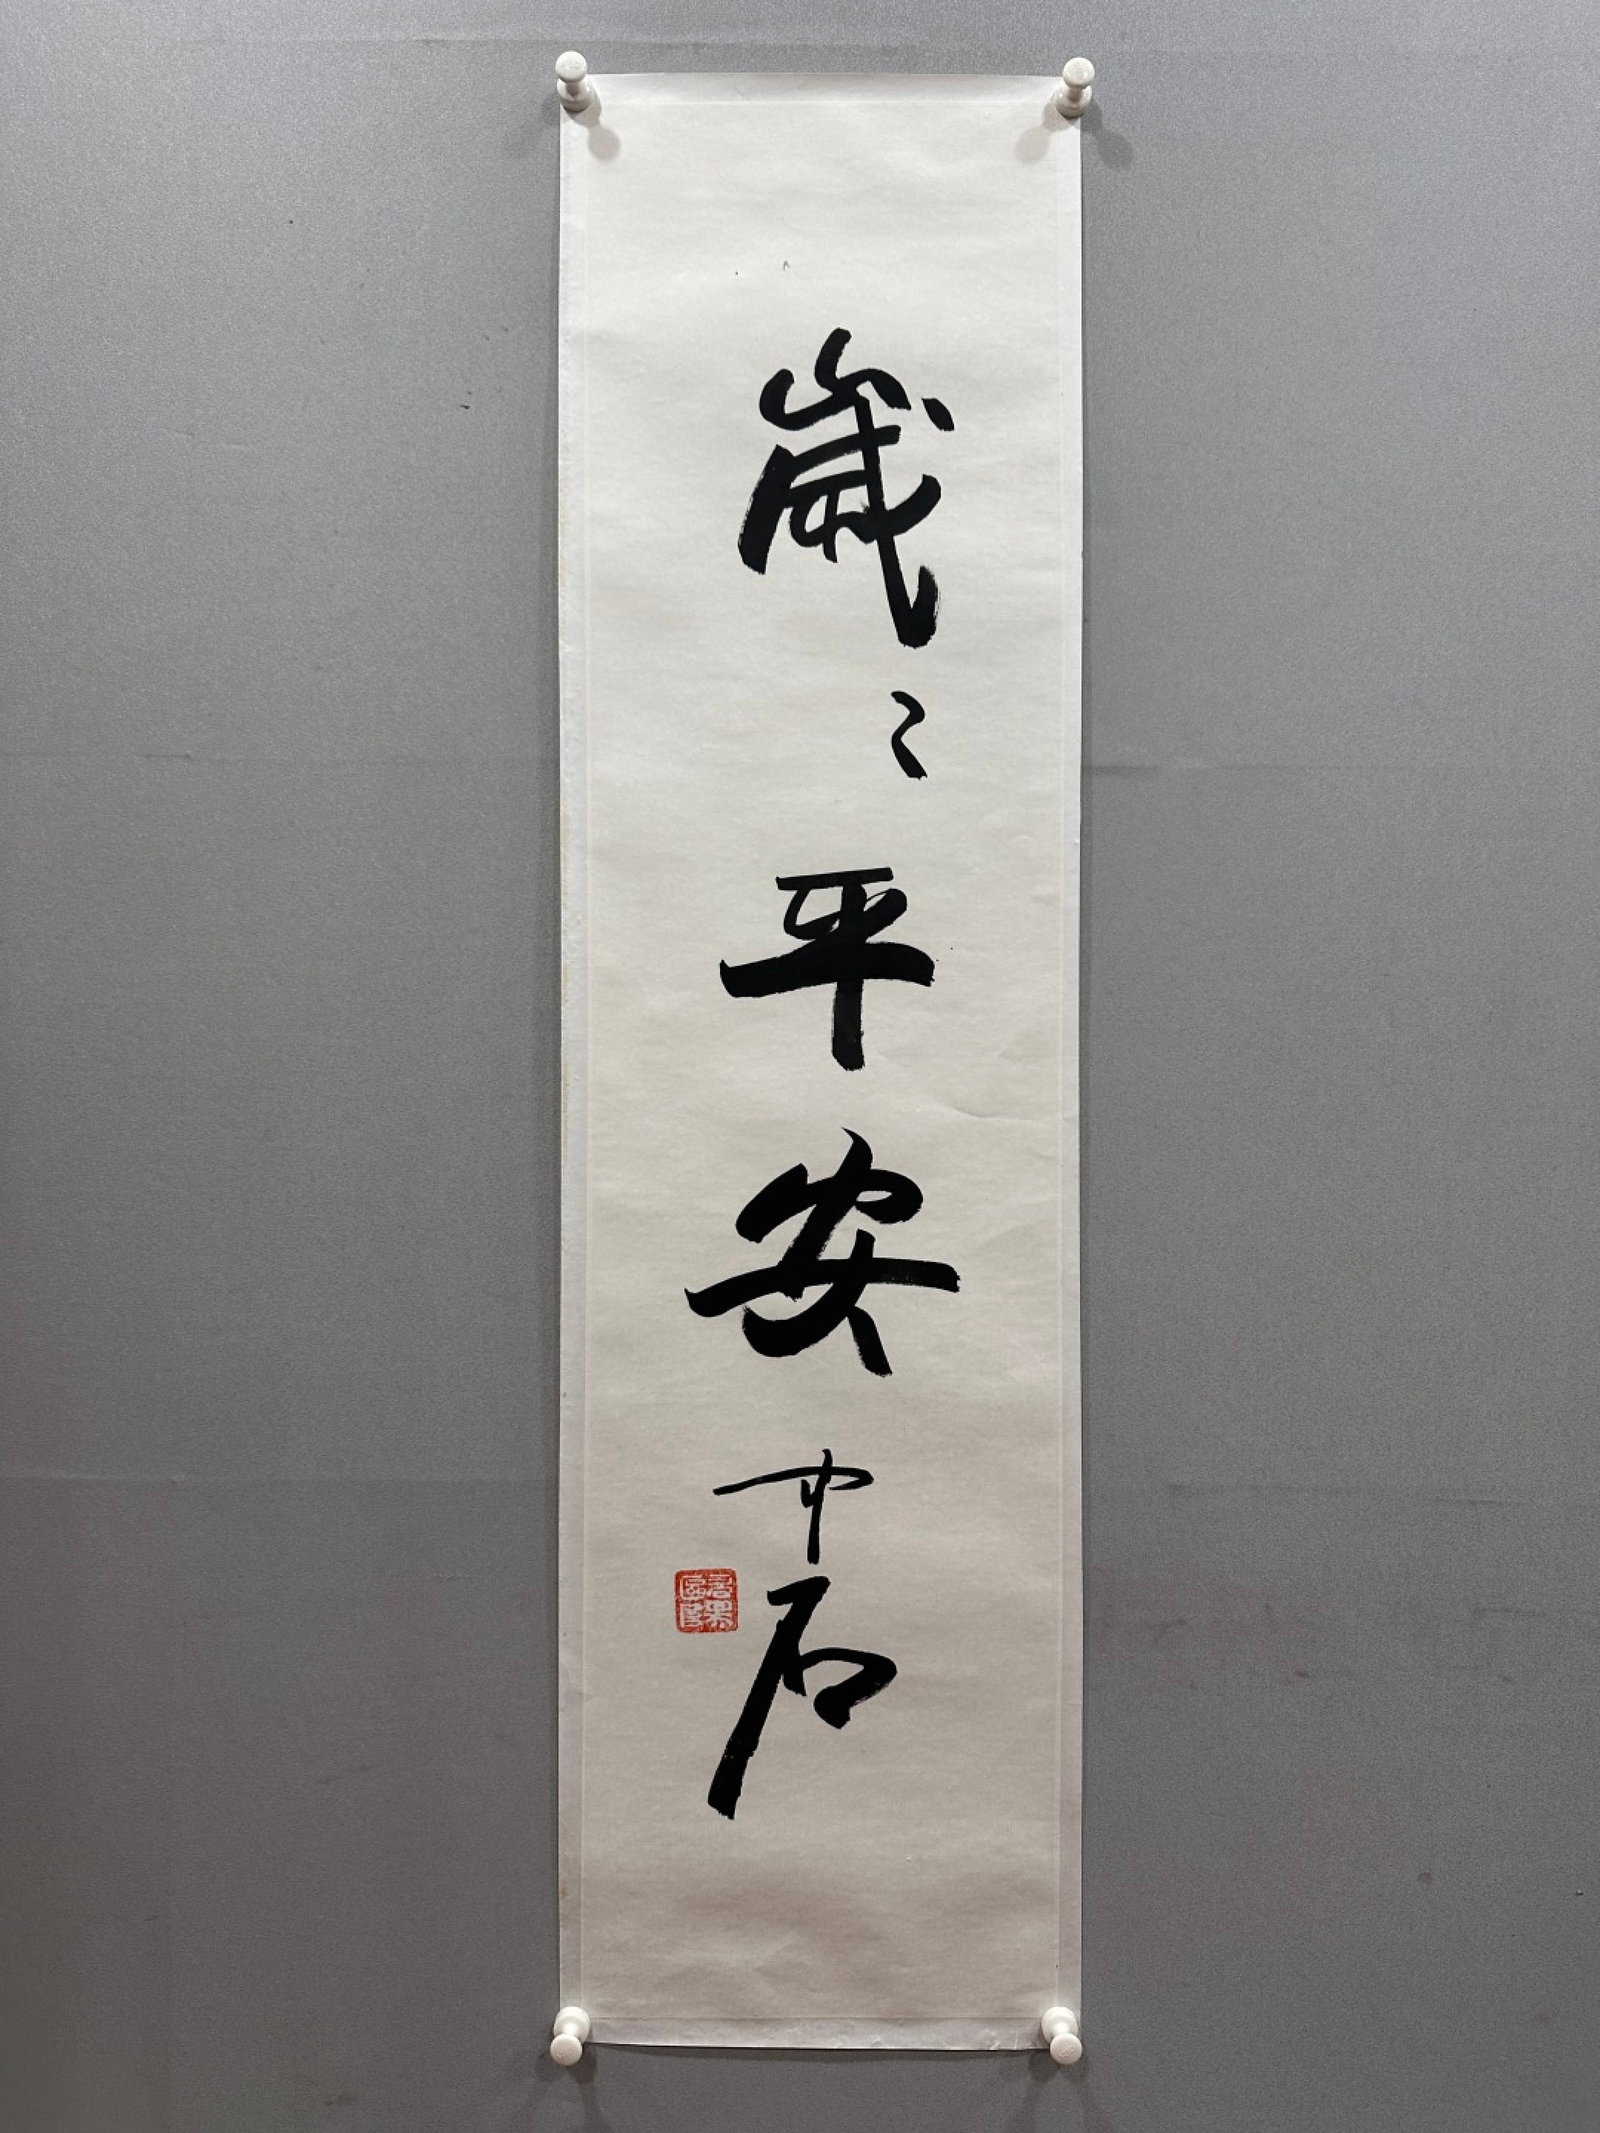 歲々平安
中石